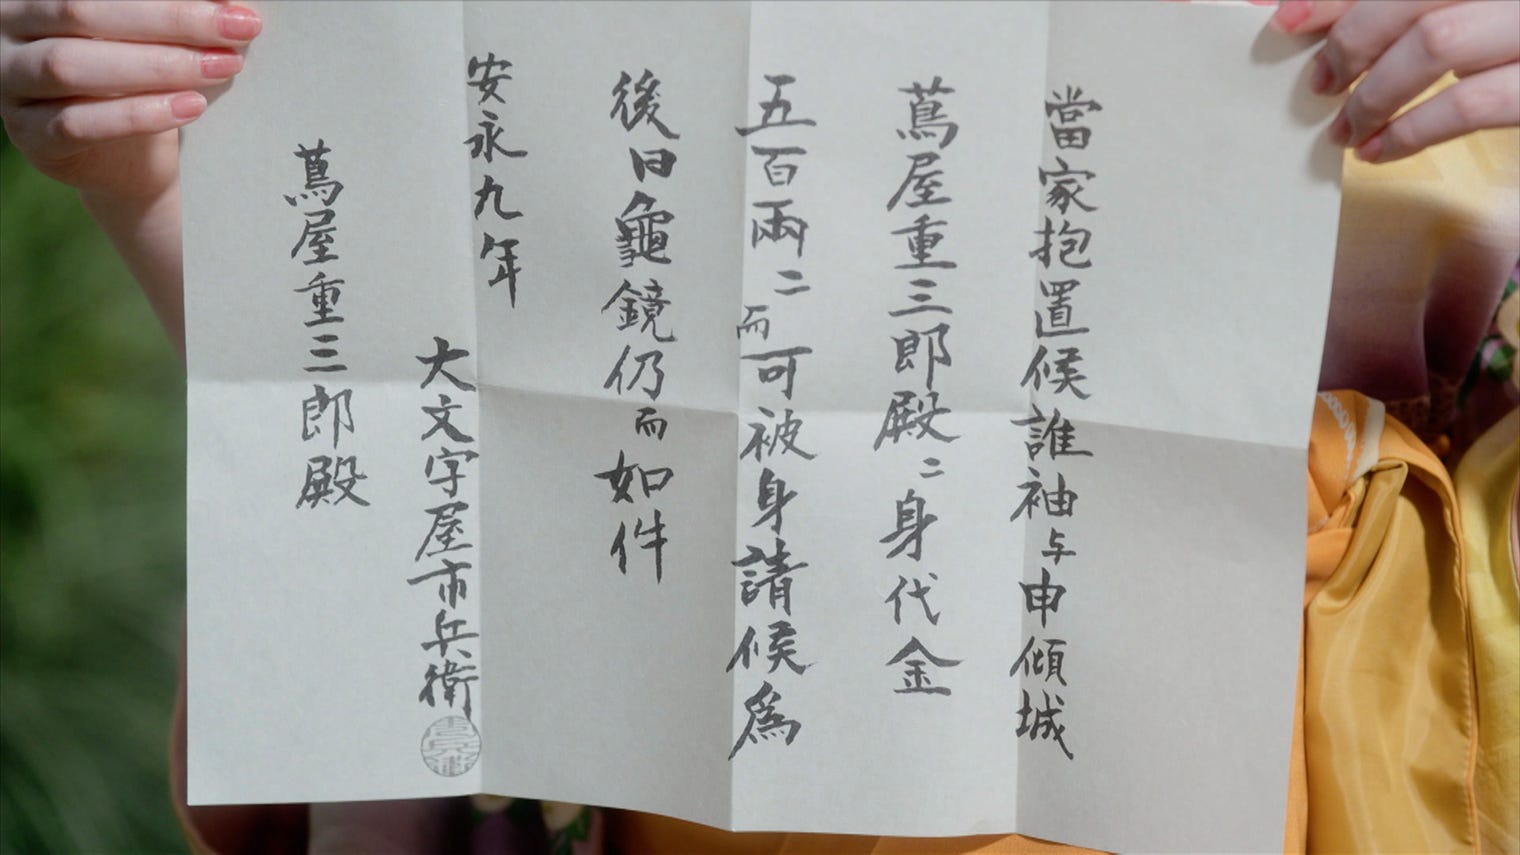 當家抱置候誰袖与申傾城
蔦屋重三郎殿ニ身代金
五百兩ニ而可被身請候爲
後日龜鏡仍而如件
安永九年
大文字屋市兵衛
蔦屋重三郎殿